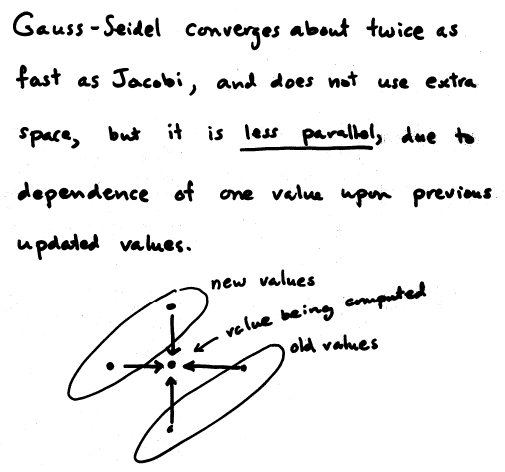 Gauss-Seidel converges about twice as
fast as Jacobi, and does not use extra
space, but it is less parallel, due to
dependence of one value upon previous
updated values.
new values
value being computed
old values